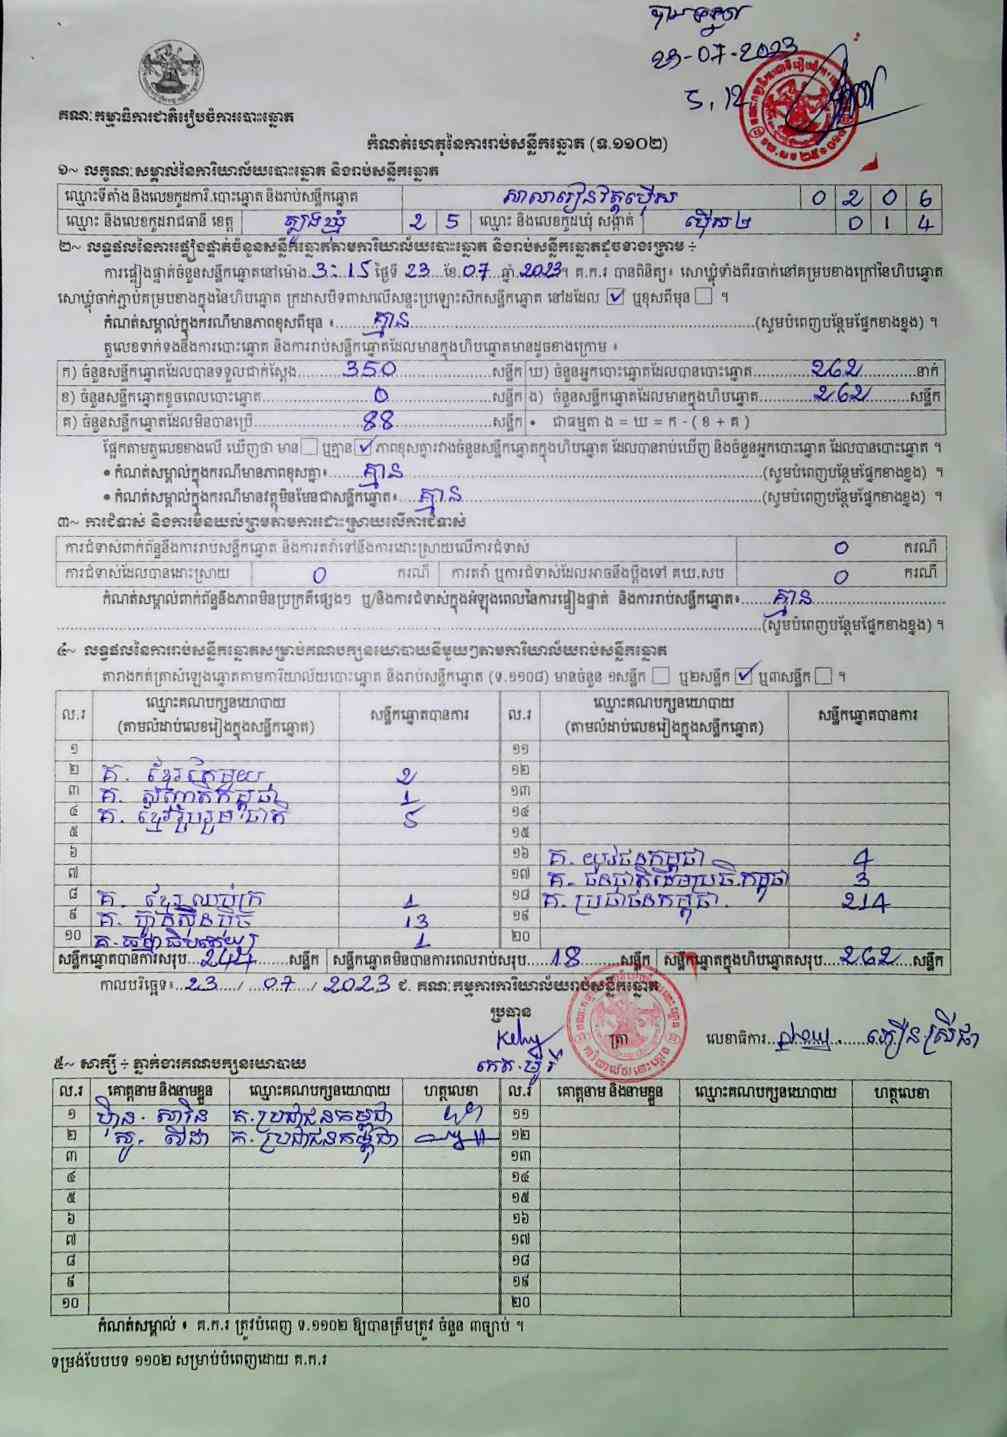 បានឃើញ
23-07-2023
5.12
គណៈកម្មាធិការជាតិរៀបចំការបោះឆ្នោត
កំណត់ហេតុនៃការរាប់សន្លឹកឆ្នោត (ទ.១១០២)
១~ លក្ខណៈសម្គាល់នៃការិយាល័យបោះឆ្នោត និងរាប់សន្លឹកឆ្នោត
ឈ្មោះទីតាំង និងលេខកូដការិ.បោះឆ្នោត និងរាប់សន្លឹកឆ្នោត សាលារៀនវត្តប៉ើស 0 2 0 6
ឈ្មោះ និងលេខកូដរាជធានី ខេត្ត ត្បូងឃ្មុំ 2 5 ឈ្មោះ និងលេខកូដឃុំ សង្កាត់ ប៉ើស២ 0 1 4
២~ លទ្ធផលនៃការផ្ទៀងផ្ទាត់ចំនួនសន្លឹកឆ្នោតតាមការិយាល័យបោះឆ្នោត និងរាប់សន្លឹកឆ្នោតដូចខាងក្រោម ÷
ការផ្ទៀងផ្ទាត់ចំនួនសន្លឹកឆ្នោតនៅម៉ោង 3:15 ថ្ងៃទី 23 ខែ 07 ឆ្នាំ 2023។ គ.ក.រ បានពិនិត្យ៖ សោឃ្លុំទាំងពីរចាក់នៅគម្របខាងក្រៅនៃហិបឆ្នោត
សោឃ្លុំចាក់ភ្ជាប់គម្របខាងក្នុងនៃហិបឆ្នោត ក្រដាសបិទពាសលើសន្ទះប្រឡោះសិកសន្លឹកឆ្នោត នៅដដែល ☑ ឬខុសពីមុន ☐ ។
កំណត់សម្គាល់ក្នុងករណីមានភាពខុសពីមុន ៖ គ្មាន (សូមបំពេញបន្ថែមផ្នែកខាងខ្នង) ។
តួលេខទាក់ទងនឹងការបោះឆ្នោត និងការរាប់សន្លឹកឆ្នោតដែលមានក្នុងហិបឆ្នោតមានដូចខាងក្រោម ៖
ក) ចំនួនសន្លឹកឆ្នោតដែលបានទទួលជាក់ស្តែង 350 សន្លឹក ឃ) ចំនួនអ្នកបោះឆ្នោតដែលបានបោះឆ្នោត 262 នាក់
ខ) ចំនួនសន្លឹកឆ្នោតខូចពេលបោះឆ្នោត 0 សន្លឹក ង) ចំនួនសន្លឹកឆ្នោតដែលមានក្នុងហិបឆ្នោត 262 សន្លឹក
គ) ចំនួនសន្លឹកឆ្នោតដែលមិនបានប្រើ 88 សន្លឹក • ជាធម្មតា ង = ឃ = ក - ( ខ + គ )
ផ្អែកតាមតួលេខខាងលើ ឃើញថា មាន ☐ ឬគ្មាន ☑ ភាពខុសគ្នារវាងចំនួនសន្លឹកឆ្នោតក្នុងហិបឆ្នោត ដែលបានរាប់ឃើញ និងចំនួនអ្នកបោះឆ្នោត ដែលបានបោះឆ្នោត ។
• កំណត់សម្គាល់ក្នុងករណីមានភាពខុសគ្នា៖ គ្មាន (សូមបំពេញបន្ថែមផ្នែកខាងខ្នង) ។
• កំណត់សម្គាល់ក្នុងករណីមានវត្ថុមិនមែនជាសន្លឹកឆ្នោត៖ គ្មាន (សូមបំពេញបន្ថែមផ្នែកខាងខ្នង) ។
៣~ ការជំទាស់ និងការមិនយល់ព្រមតាមការដោះស្រាយលើការជំទាស់
ការជំទាស់ពាក់ព័ន្ធនឹងការរាប់សន្លឹកឆ្នោត និងការតវ៉ាទៅនឹងការដោះស្រាយលើការជំទាស់ 0 ករណី
ការជំទាស់ដែលបានដោះស្រាយ 0 ករណី ការតវ៉ា ឬការជំទាស់ដែលអាចនឹងប្តឹងទៅ គឃ.សប 0 ករណី
កំណត់សម្គាល់ពាក់ព័ន្ធនឹងភាពមិនប្រក្រតីផ្សេងៗ ឬ/និងការជំទាស់ក្នុងអំឡុងពេលនៃការផ្ទៀងផ្ទាត់ និងការរាប់សន្លឹកឆ្នោត៖ គ្មាន
(សូមបំពេញបន្ថែមផ្នែកខាងខ្នង) ។
៤~ លទ្ធផលនៃការរាប់សន្លឹកឆ្នោតសម្រាប់គណបក្សនយោបាយនីមួយៗតាមការិយាល័យរាប់សន្លឹកឆ្នោត
តារាងកត់ត្រាសំឡេងឆ្នោតតាមការិយាល័យបោះឆ្នោត និងរាប់សន្លឹកឆ្នោត (ទ.១១០៨) មានចំនួន ១សន្លឹក ☐ ឬ២សន្លឹក ☑ ឬ៣សន្លឹក ☐ ។
ល.រ ឈ្មោះគណបក្សនយោបាយ (តាមលំដាប់លេខរៀងក្នុងសន្លឹកឆ្នោត) សន្លឹកឆ្នោតបានការ ល.រ ឈ្មោះគណបក្សនយោបាយ (តាមលំដាប់លេខរៀងក្នុងសន្លឹកឆ្នោត) សន្លឹកឆ្នោតបានការ
១ ១១
២ គ. ខ្មែរតែមួយ 2 ១២
៣ គ. សញ្ជាតិកម្ពុជា 1 ១៣
៤ គ. ខ្មែររួបរួមជាតិ 5 ១៤
៥ ១៥
៦ ១៦ គ. យុវជនកម្ពុជា 4
៧ ១៧ គ. ជនជាតិដើមប្រជា.កម្ពុជា 3
៨ គ. ខ្មែរឈប់ក្រ 1 ១៨ គ. ប្រជាជនកម្ពុជា 214
៩ គ. ហ៊្វុនស៊ិនប៉ិច 13 ១៩
១០ គ. ធម្មាធិបតេយ្យ 1 ២០
សន្លឹកឆ្នោតបានការសរុប 244 សន្លឹក សន្លឹកឆ្នោតមិនបានការពេលរាប់សរុប 18 សន្លឹក សន្លឹកឆ្នោតក្នុងហិបឆ្នោតសរុប 262 សន្លឹក
កាលបរិច្ឆេទ៖ 23 / 07 / 2023 ជ. គណៈកម្មការការិយាល័យរាប់សន្លឹកឆ្នោត
ប្រធាន
ត្រា លេខាធិការ ភឿន ស្រីផា
កែត.ធូរី
៥~ សាក្សី ÷ ភ្នាក់ងារគណបក្សនយោបាយ
ល.រ គោត្តនាម និងនាមខ្លួន ឈ្មោះគណបក្សនយោបាយ ហត្ថលេខា ល.រ គោត្តនាម និងនាមខ្លួន ឈ្មោះគណបក្សនយោបាយ ហត្ថលេខា
១ ប៉ិាន. សារិន គ.ប្រជាជនកម្ពុជា ១១
២ សូ. សីដា គ.ប្រជាជនកម្ពុជា ១២
៣ ១៣
៤ ១៤
៥ ១៥
៦ ១៦
៧ ១៧
៨ ១៨
៩ ១៩
១០ ២០
កំណត់សម្គាល់ ៖ គ.ក.រ ត្រូវបំពេញ ទ.១១០២ ឱ្យបានត្រឹមត្រូវ ចំនួន ៣ច្បាប់ ។
ទម្រង់បែបបទ ១១០២ សម្រាប់បំពេញដោយ គ.ក.រ